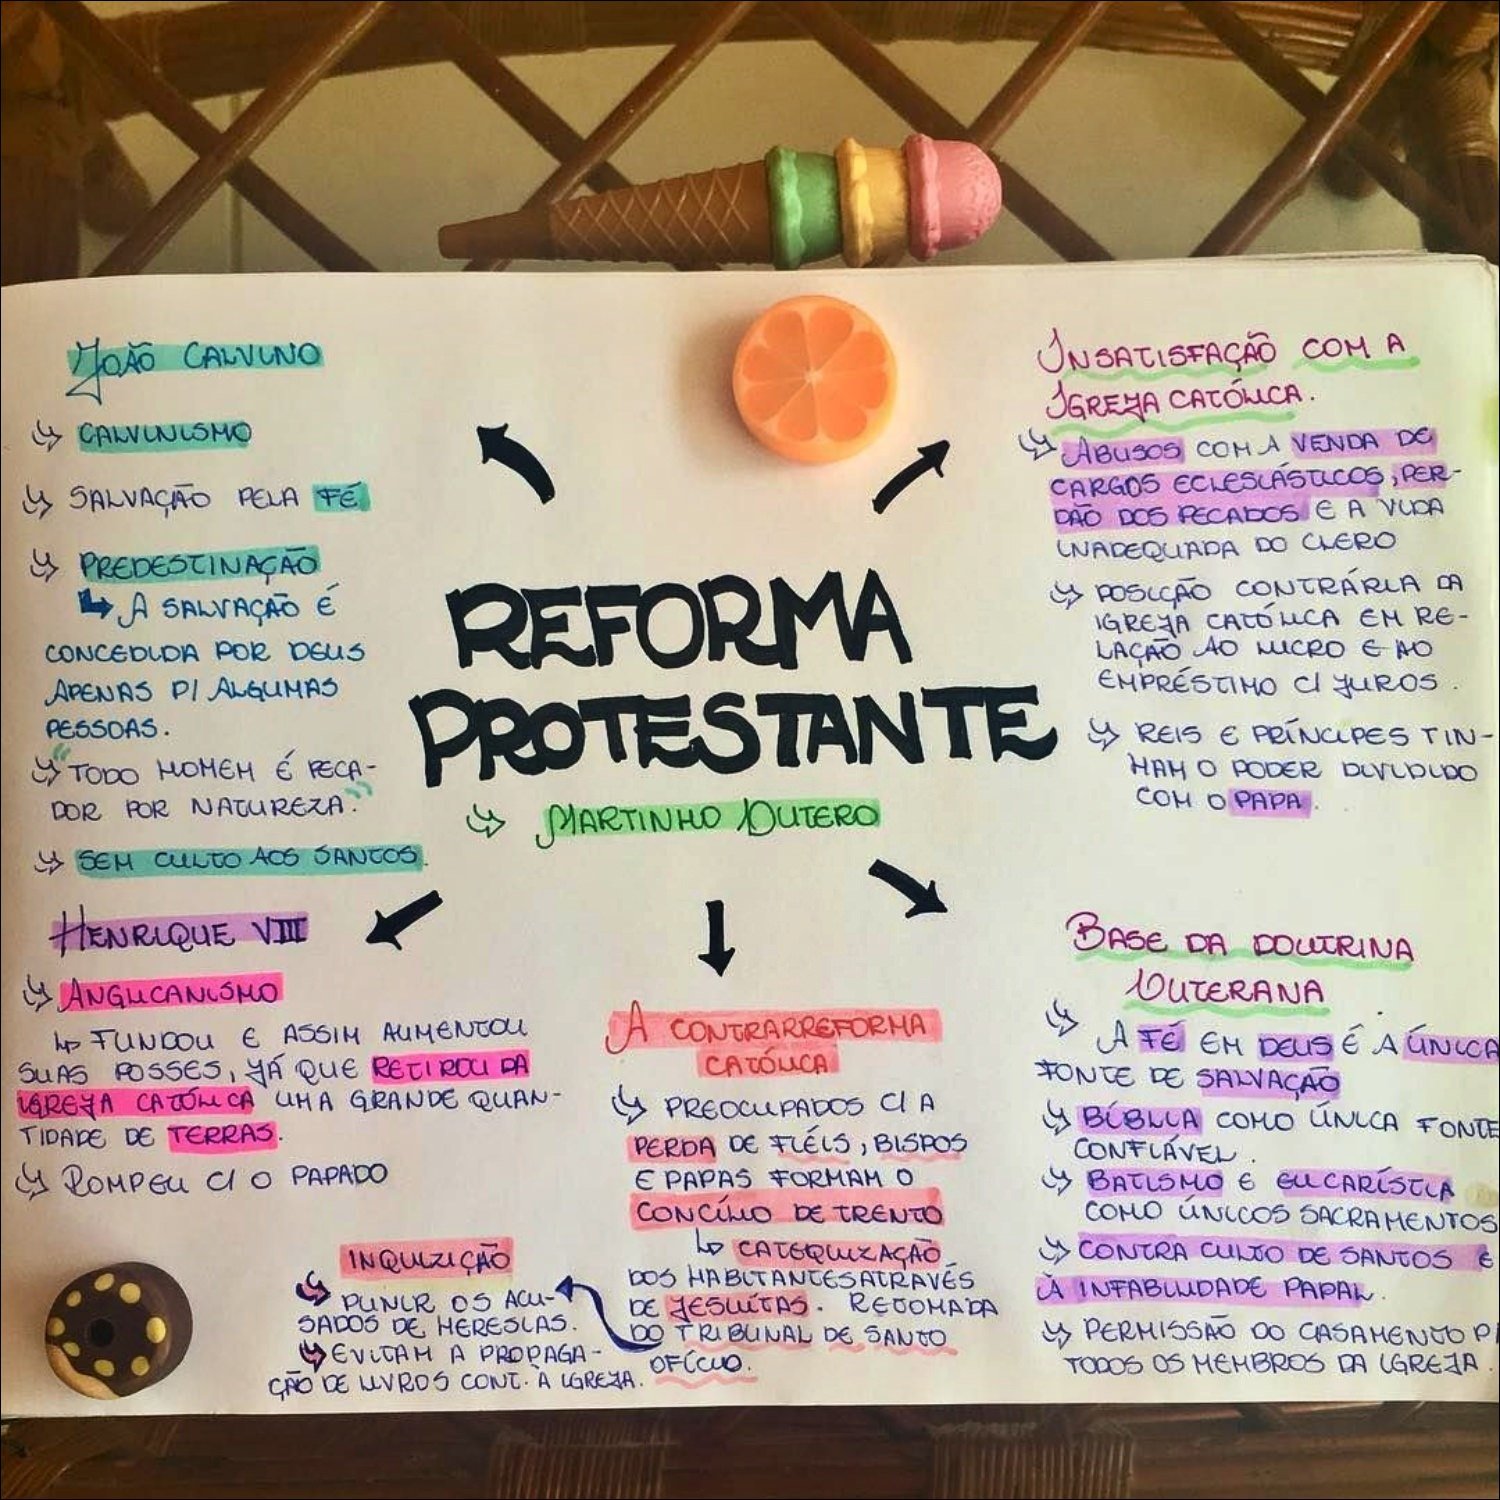 REFORMA
PROTESTANTE
↳ MARTINHO LUTERO
JOÃO CALVINO
↳ CALVINISMO
↳ SALVAÇÃO PELA FÉ
↳ PREDESTINAÇÃO
↳ A SALVAÇÃO É
CONCEDIDA POR DEUS
APENAS P/ ALGUMAS
PESSOAS.
↳ "TODO HOMEM É PECA-
DOR POR NATUREZA."
↳ SEM CULTO AOS SANTOS.
INSATISFAÇÃO COM A
IGREJA CATÓLICA.
↳ ABUSOS COM A VENDA DE
CARGOS ECLESIÁSTICOS, PER-
DÃO DOS PECADOS E A VIDA
INADEQUADA DO CLERO
↳ POSIÇÃO CONTRÁRIA DA
IGREJA CATÓLICA EM RE-
LAÇÃO AO LUCRO E AO
EMPRÉSTIMO C/ JUROS.
↳ REIS E PRÍNCIPES TIN-
HAM O PODER DIVIDIDO
COM O PAPA.
HENRIQUE VIII
↳ ANGLICANISMO
↳ FUNDOU E ASSIM AUMENTOU
SUAS POSSES, JÁ QUE RETIROU DA
IGREJA CATÓLICA UMA GRANDE QUAN-
TIDADE DE TERRAS.
↳ ROMPEU C/ O PAPADO
A CONTRARREFORMA
CATÓLICA
↳ PREOCUPADOS C/ A
PERDA DE FIÉIS, BISPOS
E PAPAS FORMAM O
CONCÍLIO DE TRENTO
↳ CATEQUIZAÇÃO
DOS HABITANTES ATRAVÉS
DE JESUÍTAS. RETOMADA
DO TRIBUNAL DE SANTO
OFÍCIO.
INQUIZIÇÃO
↳ PUNIR OS ACU-
SADOS DE HERESIAS.
↳ EVITAM A PROPAGA-
ÇÃO DE LIVROS CONT. À IGREJA.
BASE DA DOUTRINA
LUTERANA
↳ A FÉ EM DEUS É A ÚNICA
FONTE DE SALVAÇÃO
↳ BÍBLIA COMO ÚNICA FONTE
CONFIÁVEL.
↳ BATISMO E EUCARÍSTIA
COMO ÚNICOS SACRAMENTOS
↳ CONTRA CULTO DE SANTOS E
À INFABILIDADE PAPAL.
↳ PERMISSÃO DO CASAMENTO P/
TODOS OS MEMBROS DA IGREJA.